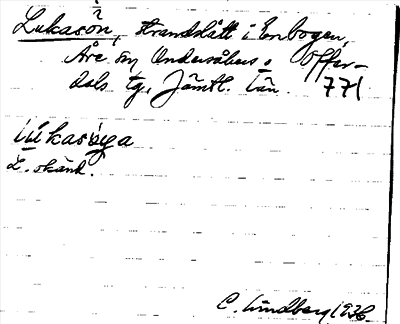 Lukasön, strandslått i Enbogen,
Åre sn Undersåkers o. Offer-
dals tg, Jämtl. län. 771
lúkasö̀ya
L. skänk.
C. Lindberg 1936.